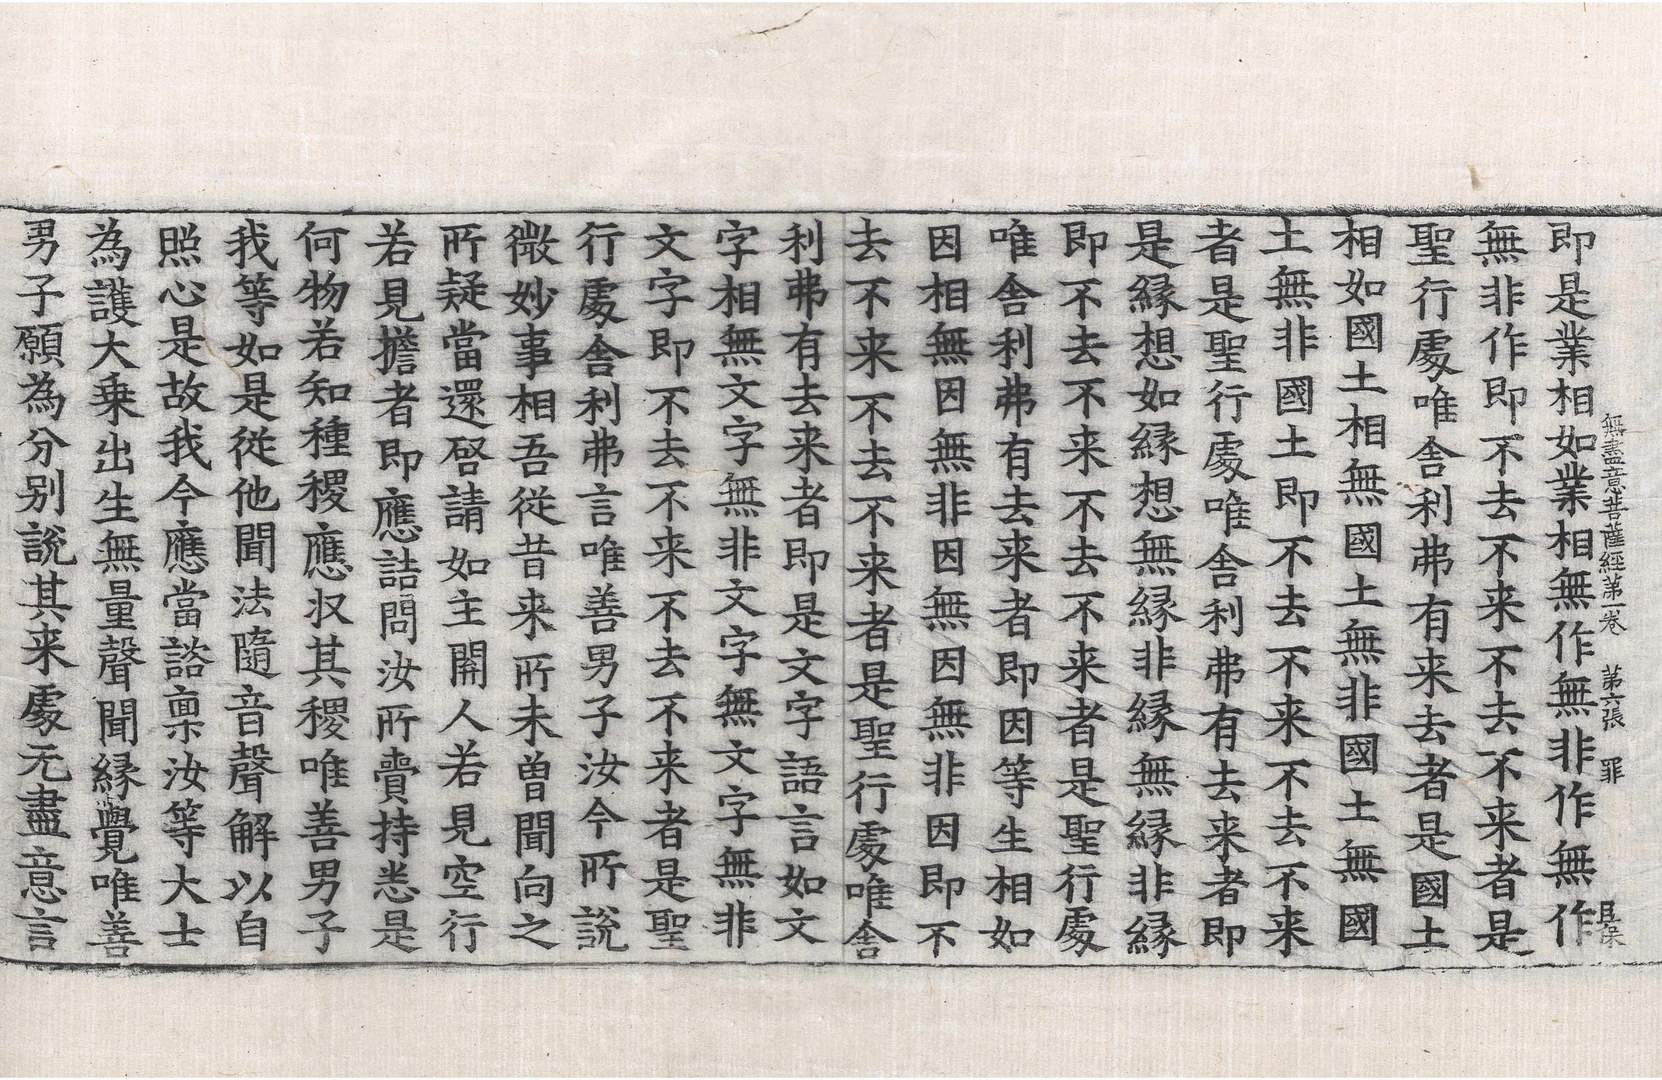 無盡意菩薩經第一卷　第六張　罪
即是業相如業相無作無非作無作
無非作即不去不来不去不来者是
聖行處唯舎利弗有来去者是國土
相如國土相無國土無非國土無國
土無非國土即不去不来不去不来
者是聖行處唯舎利弗有去来者即
是縁想如縁想無縁非縁無縁非縁
即不去不来不去不来者是聖行處
唯舎利弗有去来者即因等生相如
因相無因無非因無因無非因即不
去不来不去不来者是聖行處唯舎
利弗有去来者即是文字語言如文
字相無文字無非文字無文字無非
文字即不去不来不去不来者是聖
行處舎利弗言唯善男子汝今所說
微妙事相吾従昔来所未曽聞向之
所疑當還啓請如主開人若見空行
若見擔者即應詰問汝所賷持悉是
何物若知種稷應収其稷唯善男子
我等如是従他聞法隨音聲解以自
照心是故我今應當諮禀汝等大士
為護大乗出生無量聲聞縁覺唯善
男子願為分别說其来處无盡意言